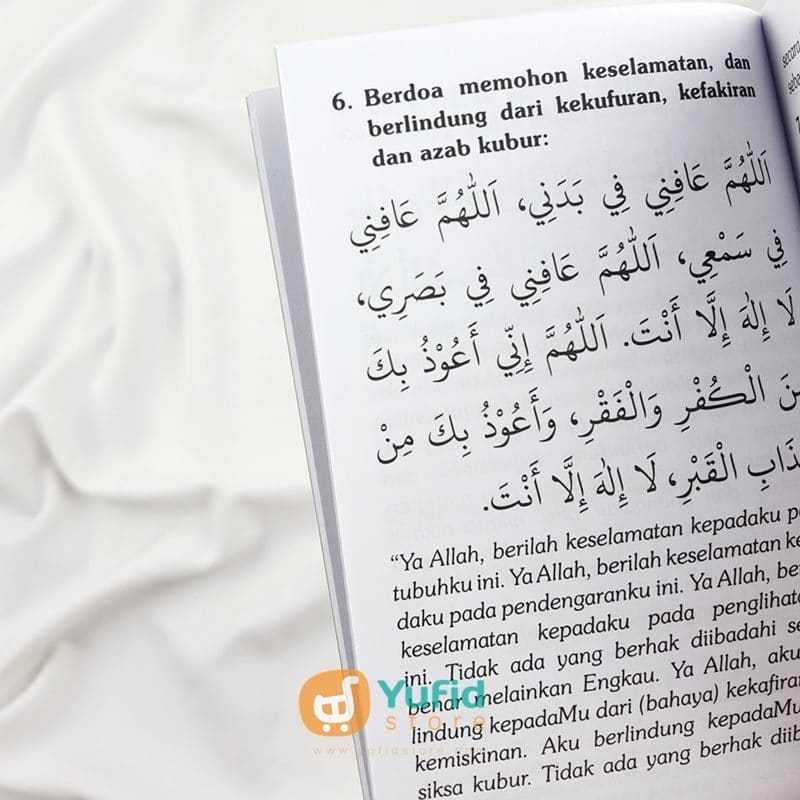 6. Berdoa memohon keselamatan, dan
berlindung dari kekufuran, kefakiran
dan azab kubur:
اَللّٰهُمَّ عَافِنِي فِي بَدَنِي، اَللّٰهُمَّ عَافِنِي
فِي سَمْعِي، اَللّٰهُمَّ عَافِنِي فِي بَصَرِي،
لَا إِلٰهَ إِلَّا أَنْتَ. اَللّٰهُمَّ إِنِّي أَعُوْذُ بِكَ
الْكُفْرِ وَالْفَقْرِ، وَأَعُوْذُ بِكَ مِنْ
الْقَبْرِ، لَا إِلٰهَ إِلَّا أَنْتَ.
“Ya Allah, berilah keselamatan kepadaku
tubuhku ini. Ya Allah, berilah keselamatan
daku pada pendengaranku ini. Ya Allah,
keselamatan kepadaku pada
ini. Tidak ada yang berhak diibadahi
benar melainkan Engkau. Ya Allah, aku
lindung kepadaMu dari (bahaya)
kemiskinan. Aku berlindung kepadaMu
siksa kubur. Tidak ada yang berhak
Yufid
store